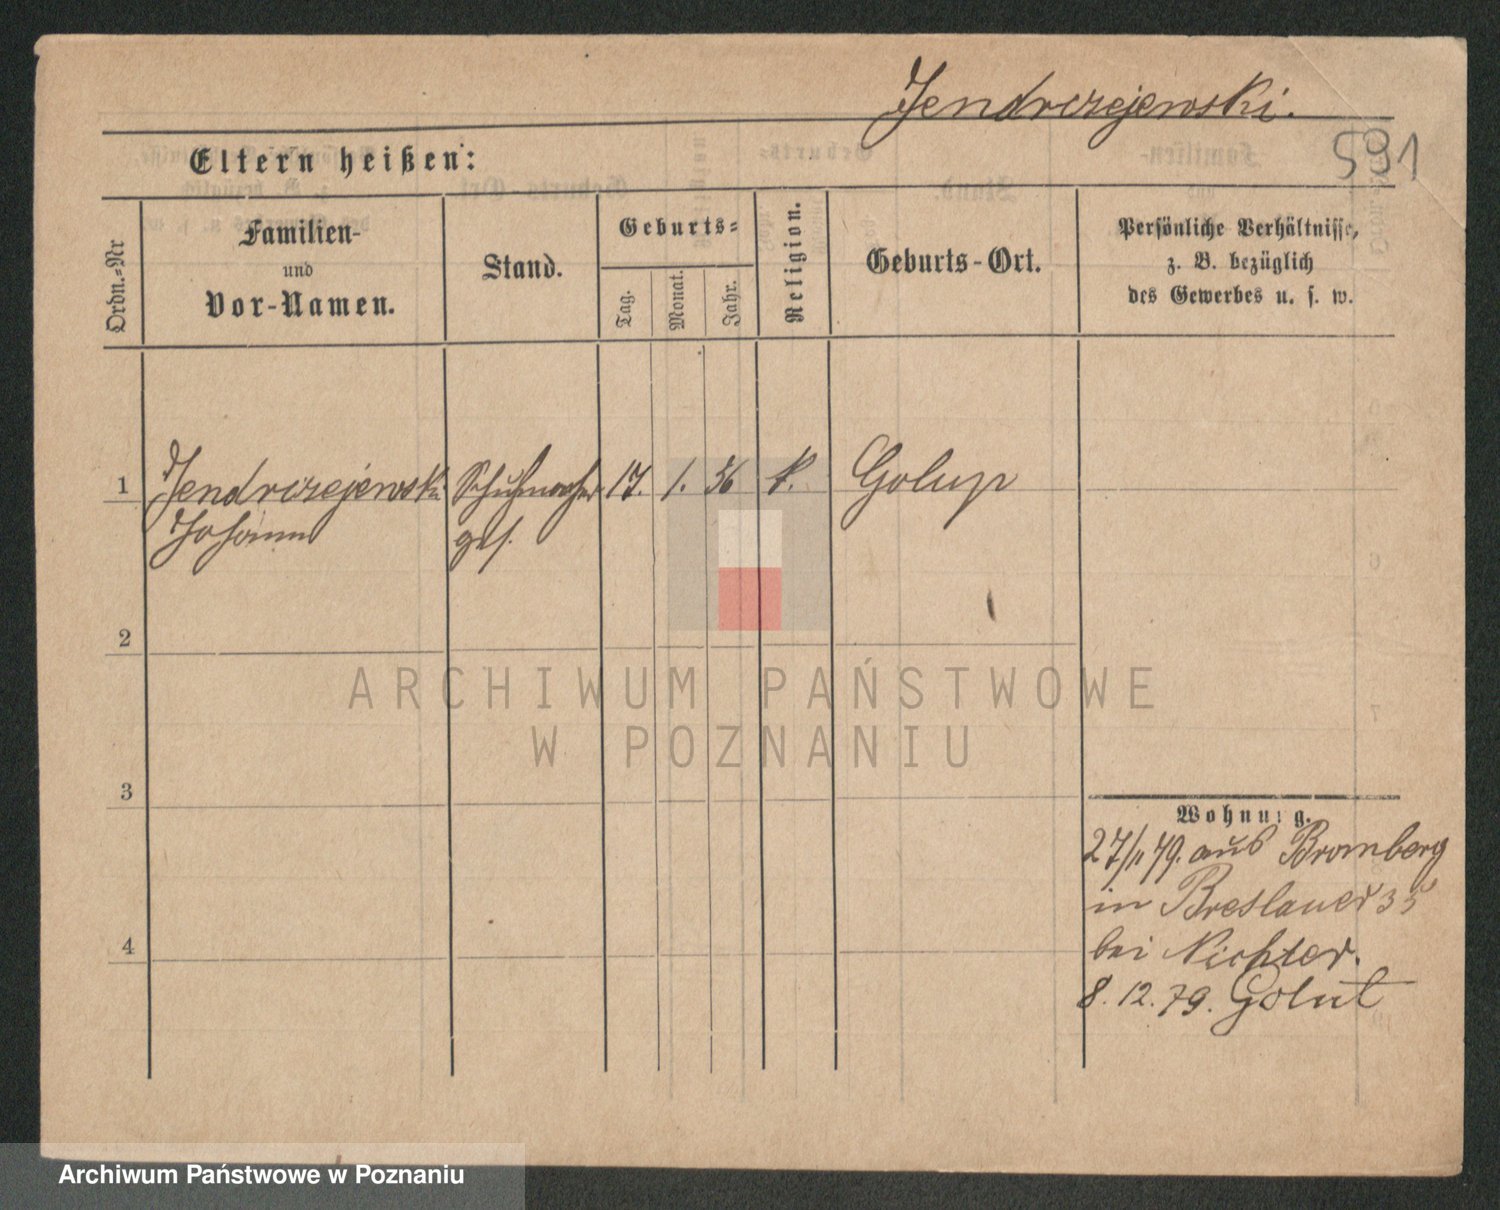 Jendrczejewski.
591
Eltern heißen:
Ordn.=Nr
Familien-
und
Vor-Namen.
Stand.
Geburts=
Tag.
Monat.
Jahr.
Religion.
Geburts-Ort.
Persönliche Verhältnisse,
z. B. bezüglich
des Gewerbes u. s. w.
1 Jendrczejewski Schuhmacher 17. 1. 56 k. Golup
Johann ges.
2
3
4
Wohnung.
27/11 79. aus Bromberg
in Breslauer 35
bei Richter.
8. 12. 79. Golut
ARCHIWUM PAŃSTWOWE
W POZNANIU
Archiwum Państwowe w Poznaniu